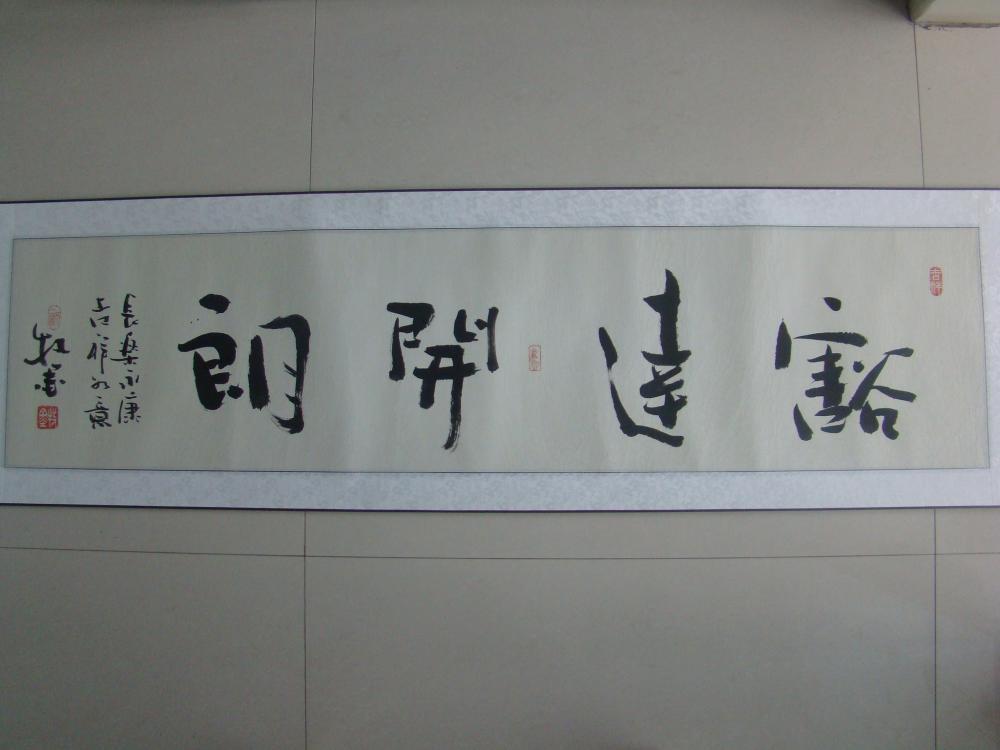 豁達開朗
長樂永康
吉祥如意